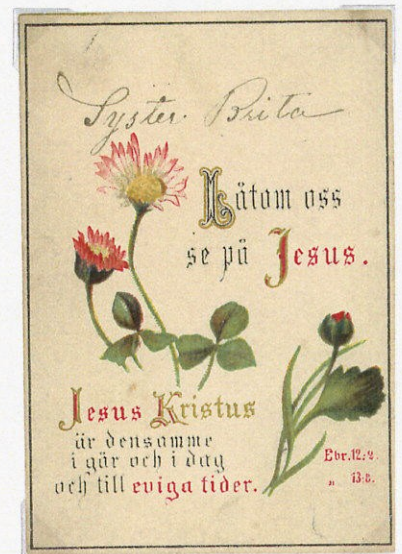 Syster Brita
Låtom oss
se på Jesus.
Jesus Kristus
är densamme
i går och i dag
och till eviga tider.
Ebr. 12:2.
„ 13:8.